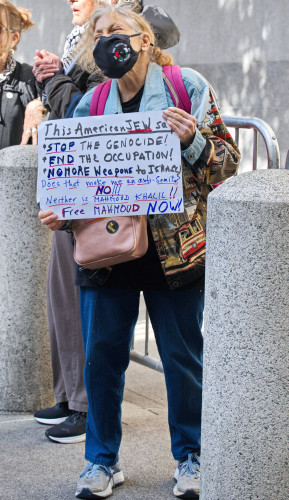 This American JEW says
*STOP THE GENOCIDE!
*END THE OCCUPATION!
*NO MORE Weapons to ISRAEL!
Does that make me an anti-Semite?
NO!!!
Neither is MAHMOUD KHALIL!!
Free MAHMOUD NOW!